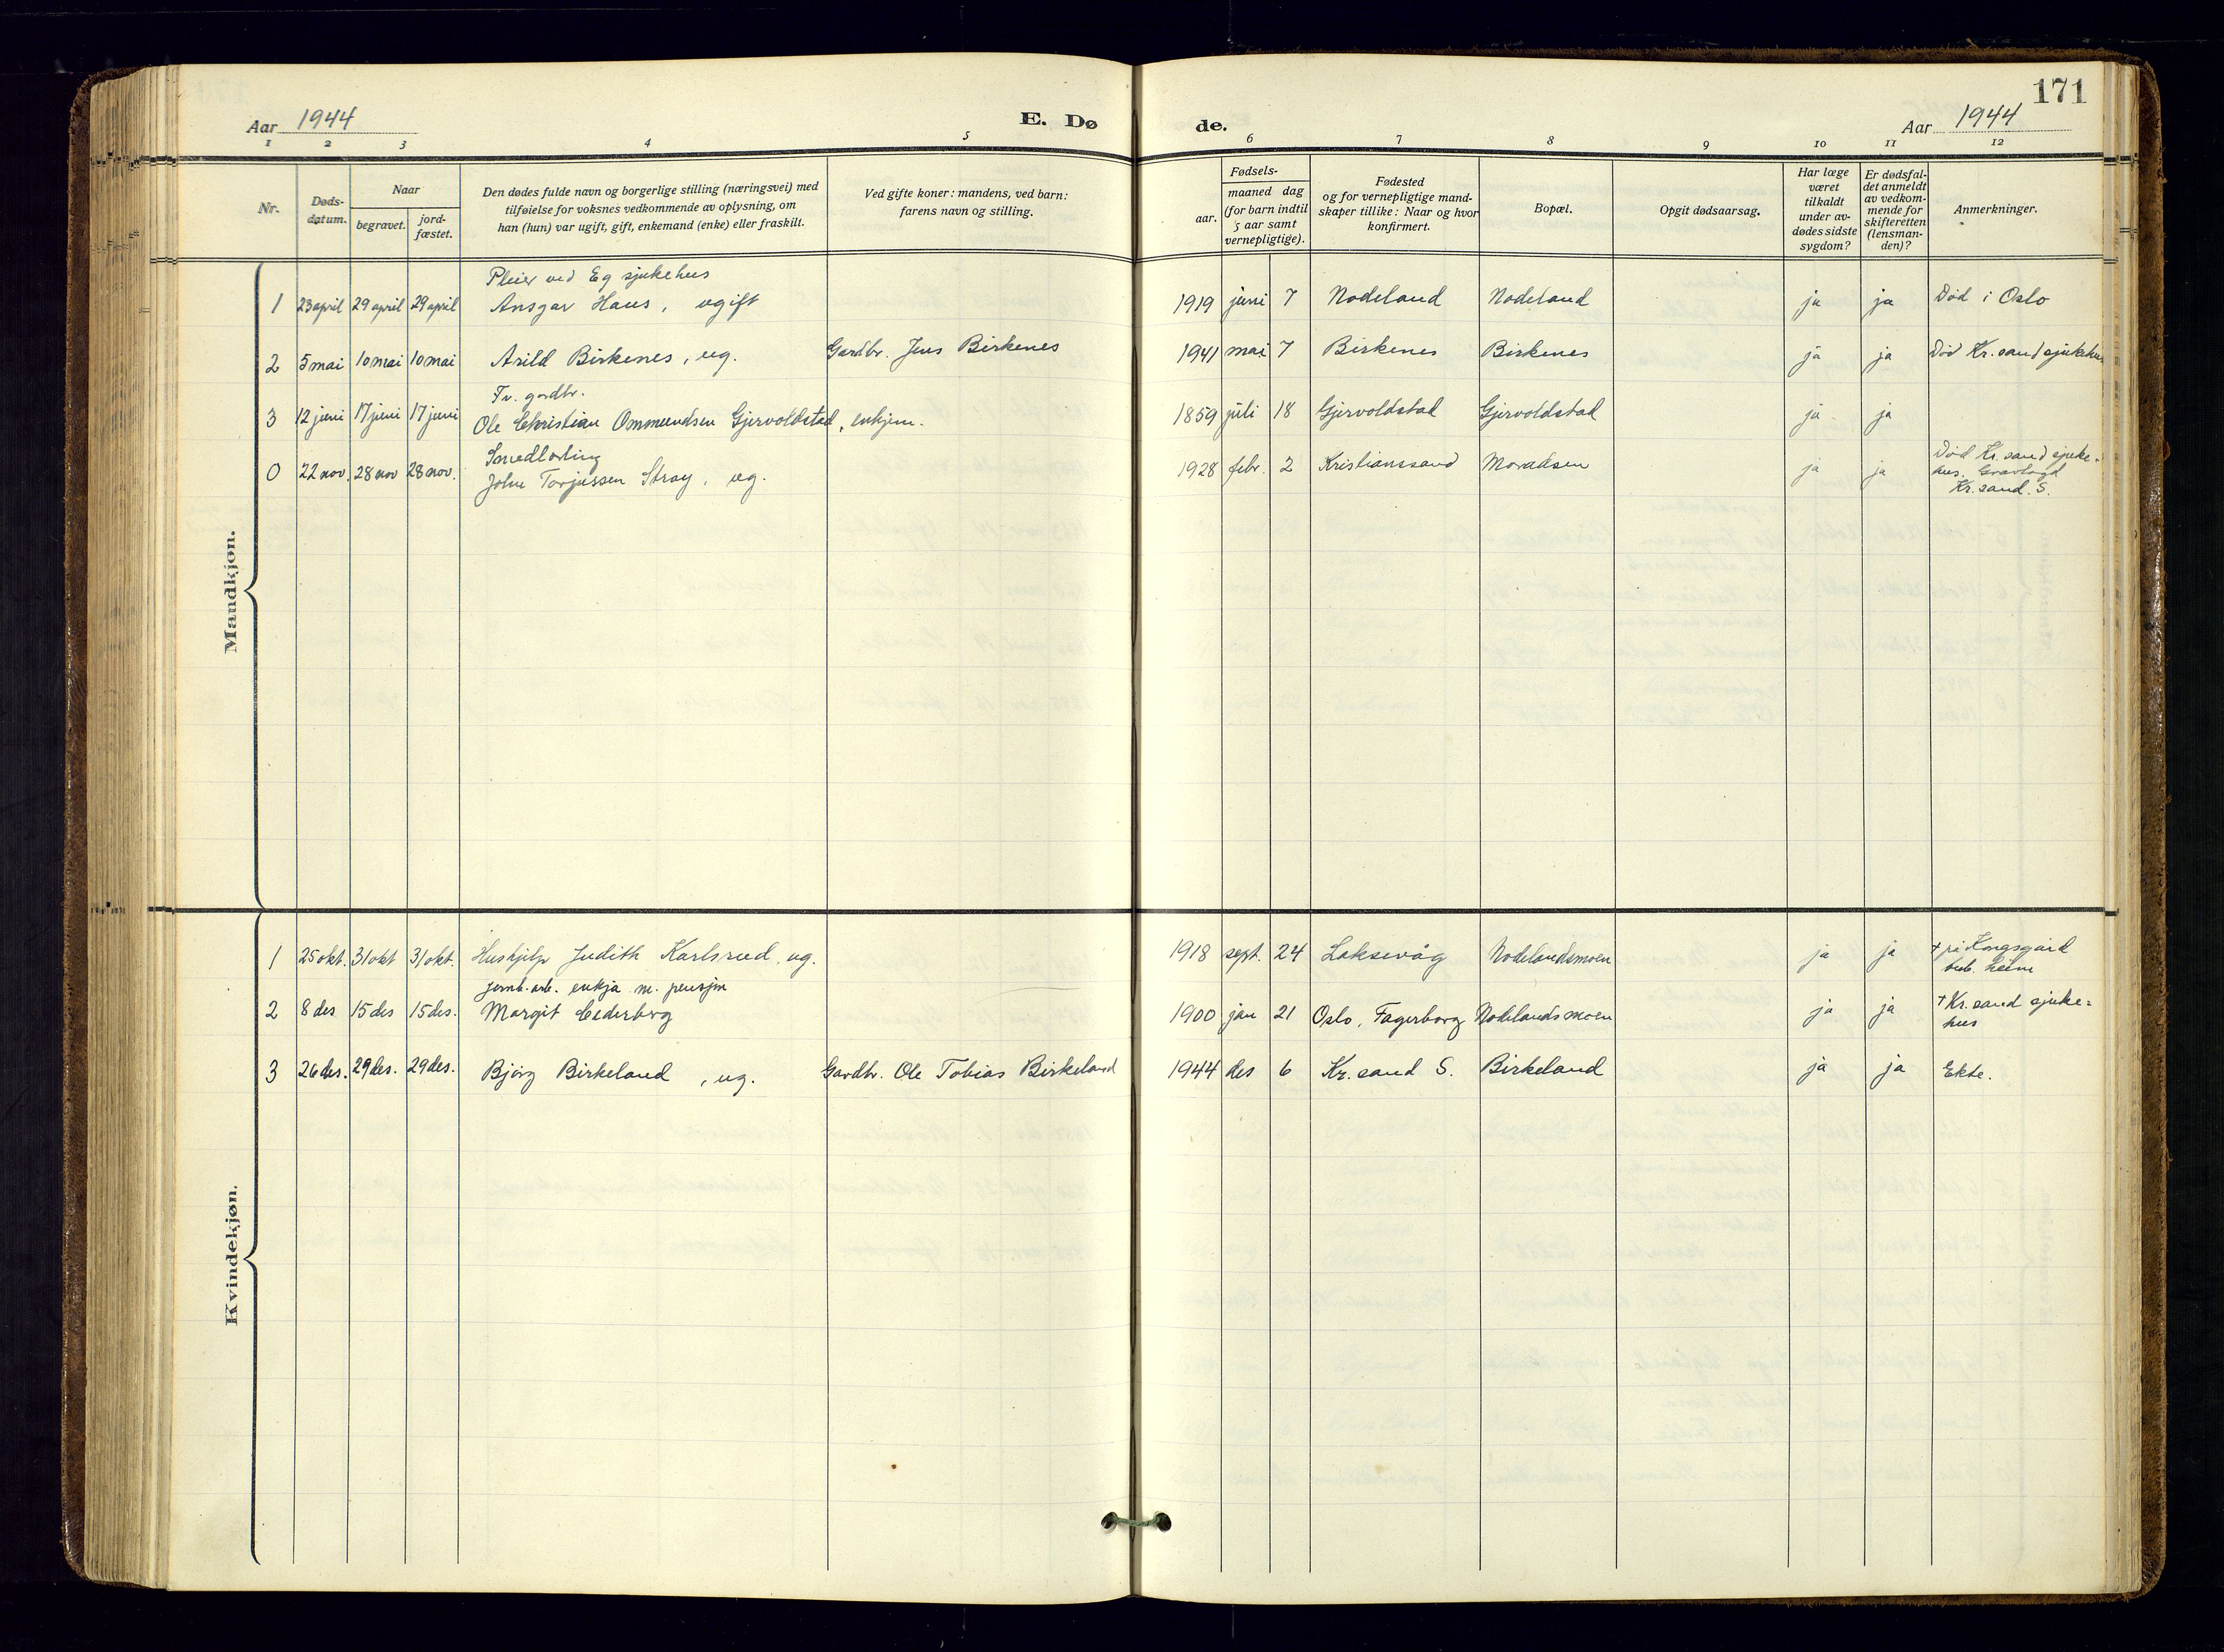 171
Aar 1944
E. Dø
de.
Aar 1944
1 2 3 4 5 6 7 8 9 10 11 12
Nr.
Døds-
datum.
Naar
begravet.
jord-
fæstet.
Den dødes fulde navn og borgerlige stilling (næringsvei) med
tilføielse for voksnes vedkommende av oplysning, om
han (hun) var ugift, gift, enkemand (enke) eller fraskilt.
Ved gifte koner: mandens, ved barn:
farens navn og stilling.
Fødsels-
aar.
maaned dag
(for barn indtil
5 aar samt
vernepligtige).
Fødested
og for vernepligtige mand-
skaper tillike: Naar og hvor
konfirmert.
Bopæl.
Opgit dødsaarsag.
Har læge
været
tilkaldt
under av-
dødes sidste
sygdom?
Er dødsfal-
det anmeldt
av vedkom-
mende for
skifteretten
(lensman-
den)?
Anmerkninger.
Mandkjøn.
Pleier ved Eg sjukehus
1 23 april 29 april 29 april Ansgar Haus, ugift 1919 juni 7 Nodeland Nodeland ja ja Død i Oslo
2 5 mai 10 mai 10 mai Arild Birkenes, ug. Gardbr. Jens Birkenes 1941 mai 7 Birkenes Birkenes ja ja Død Kr.sand sjukehus
Fv. gardbr.
3 12 juni 17 juni 17 juni Ole Christian Ommundsen Gjervoldstad, enkjem. 1859 juli 18 Gjervoldstad Gjervoldstad ja ja
Smedlærling
0 22 nov. 28 nov 28 nov. John Torjussen Stray, ug. 1928 febr. 2 Kristianssand ja ja Død Kr.sand sjuke-
hus. Gravlagd
Kr.sand. S.
Kvindekjøn.
1 25 okt. 31 okt 31 okt. Hushjelp Judith Karlsrud, ug. 1918 sept. 24 Laksevåg Nodelandsmoen ja ja + på Kongsgård
heim
Jernb.arb. enkja m. pensjon
2 8 des 15 des 15 des. Margit Cederberg 1900 jan 21 Oslo, Fagerborg Nodelandsmoen ja ja + Kr.sand sjuke=
hus
3 26 des. 29 des. 29 des. Bjørg Birkeland, ug. Gardbr. Ole Tobias Birkeland 1944 des 6 Kr.sand S. Birkeland ja ja Ekte.